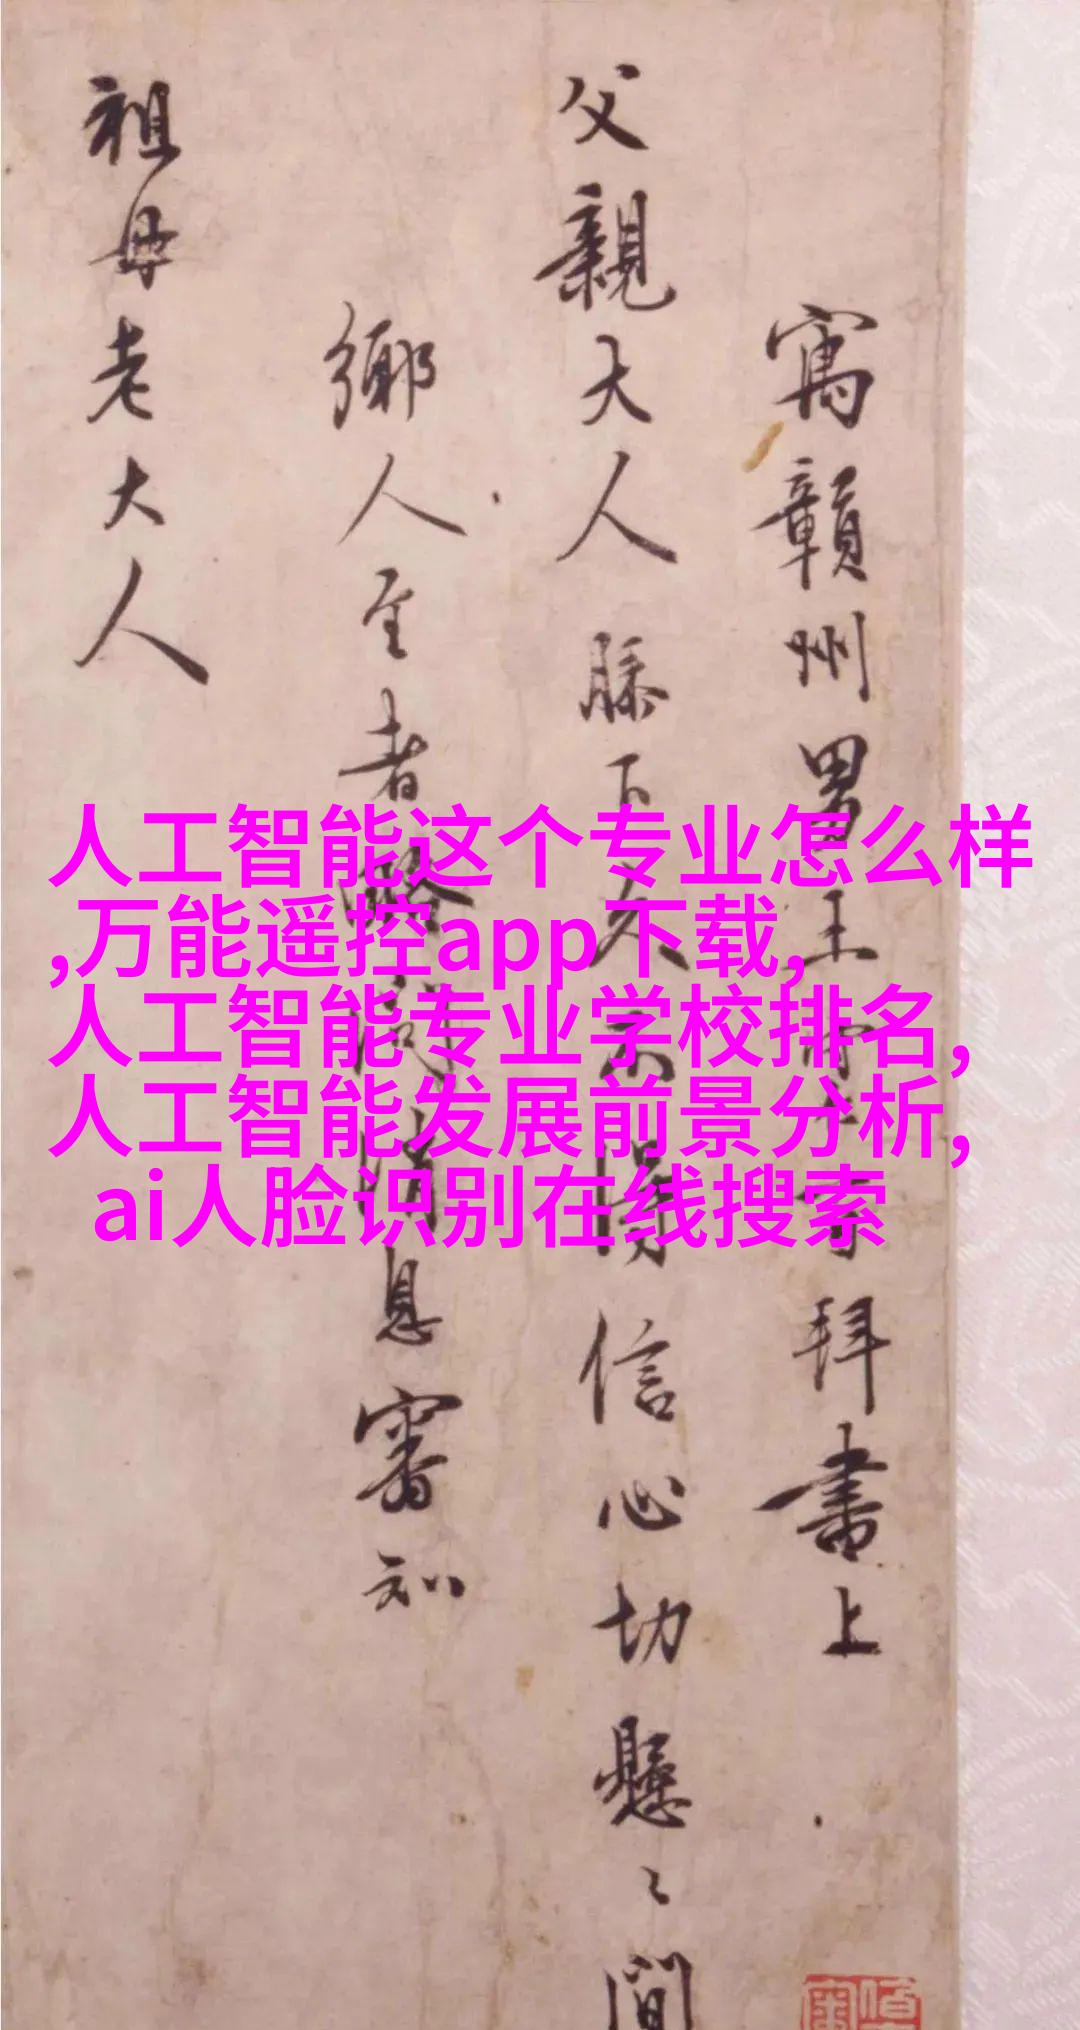 寓贛州男王守仁百拜書上
父親大人膝下久不得信心切懸〻間
鄉人至者略詢消息審知
祖母老大人
人工智能这个专业怎么样
,万能遥控app下载,
人工智能专业学校排名,
人工智能发展前景分析,
ai人脸识别在线搜索